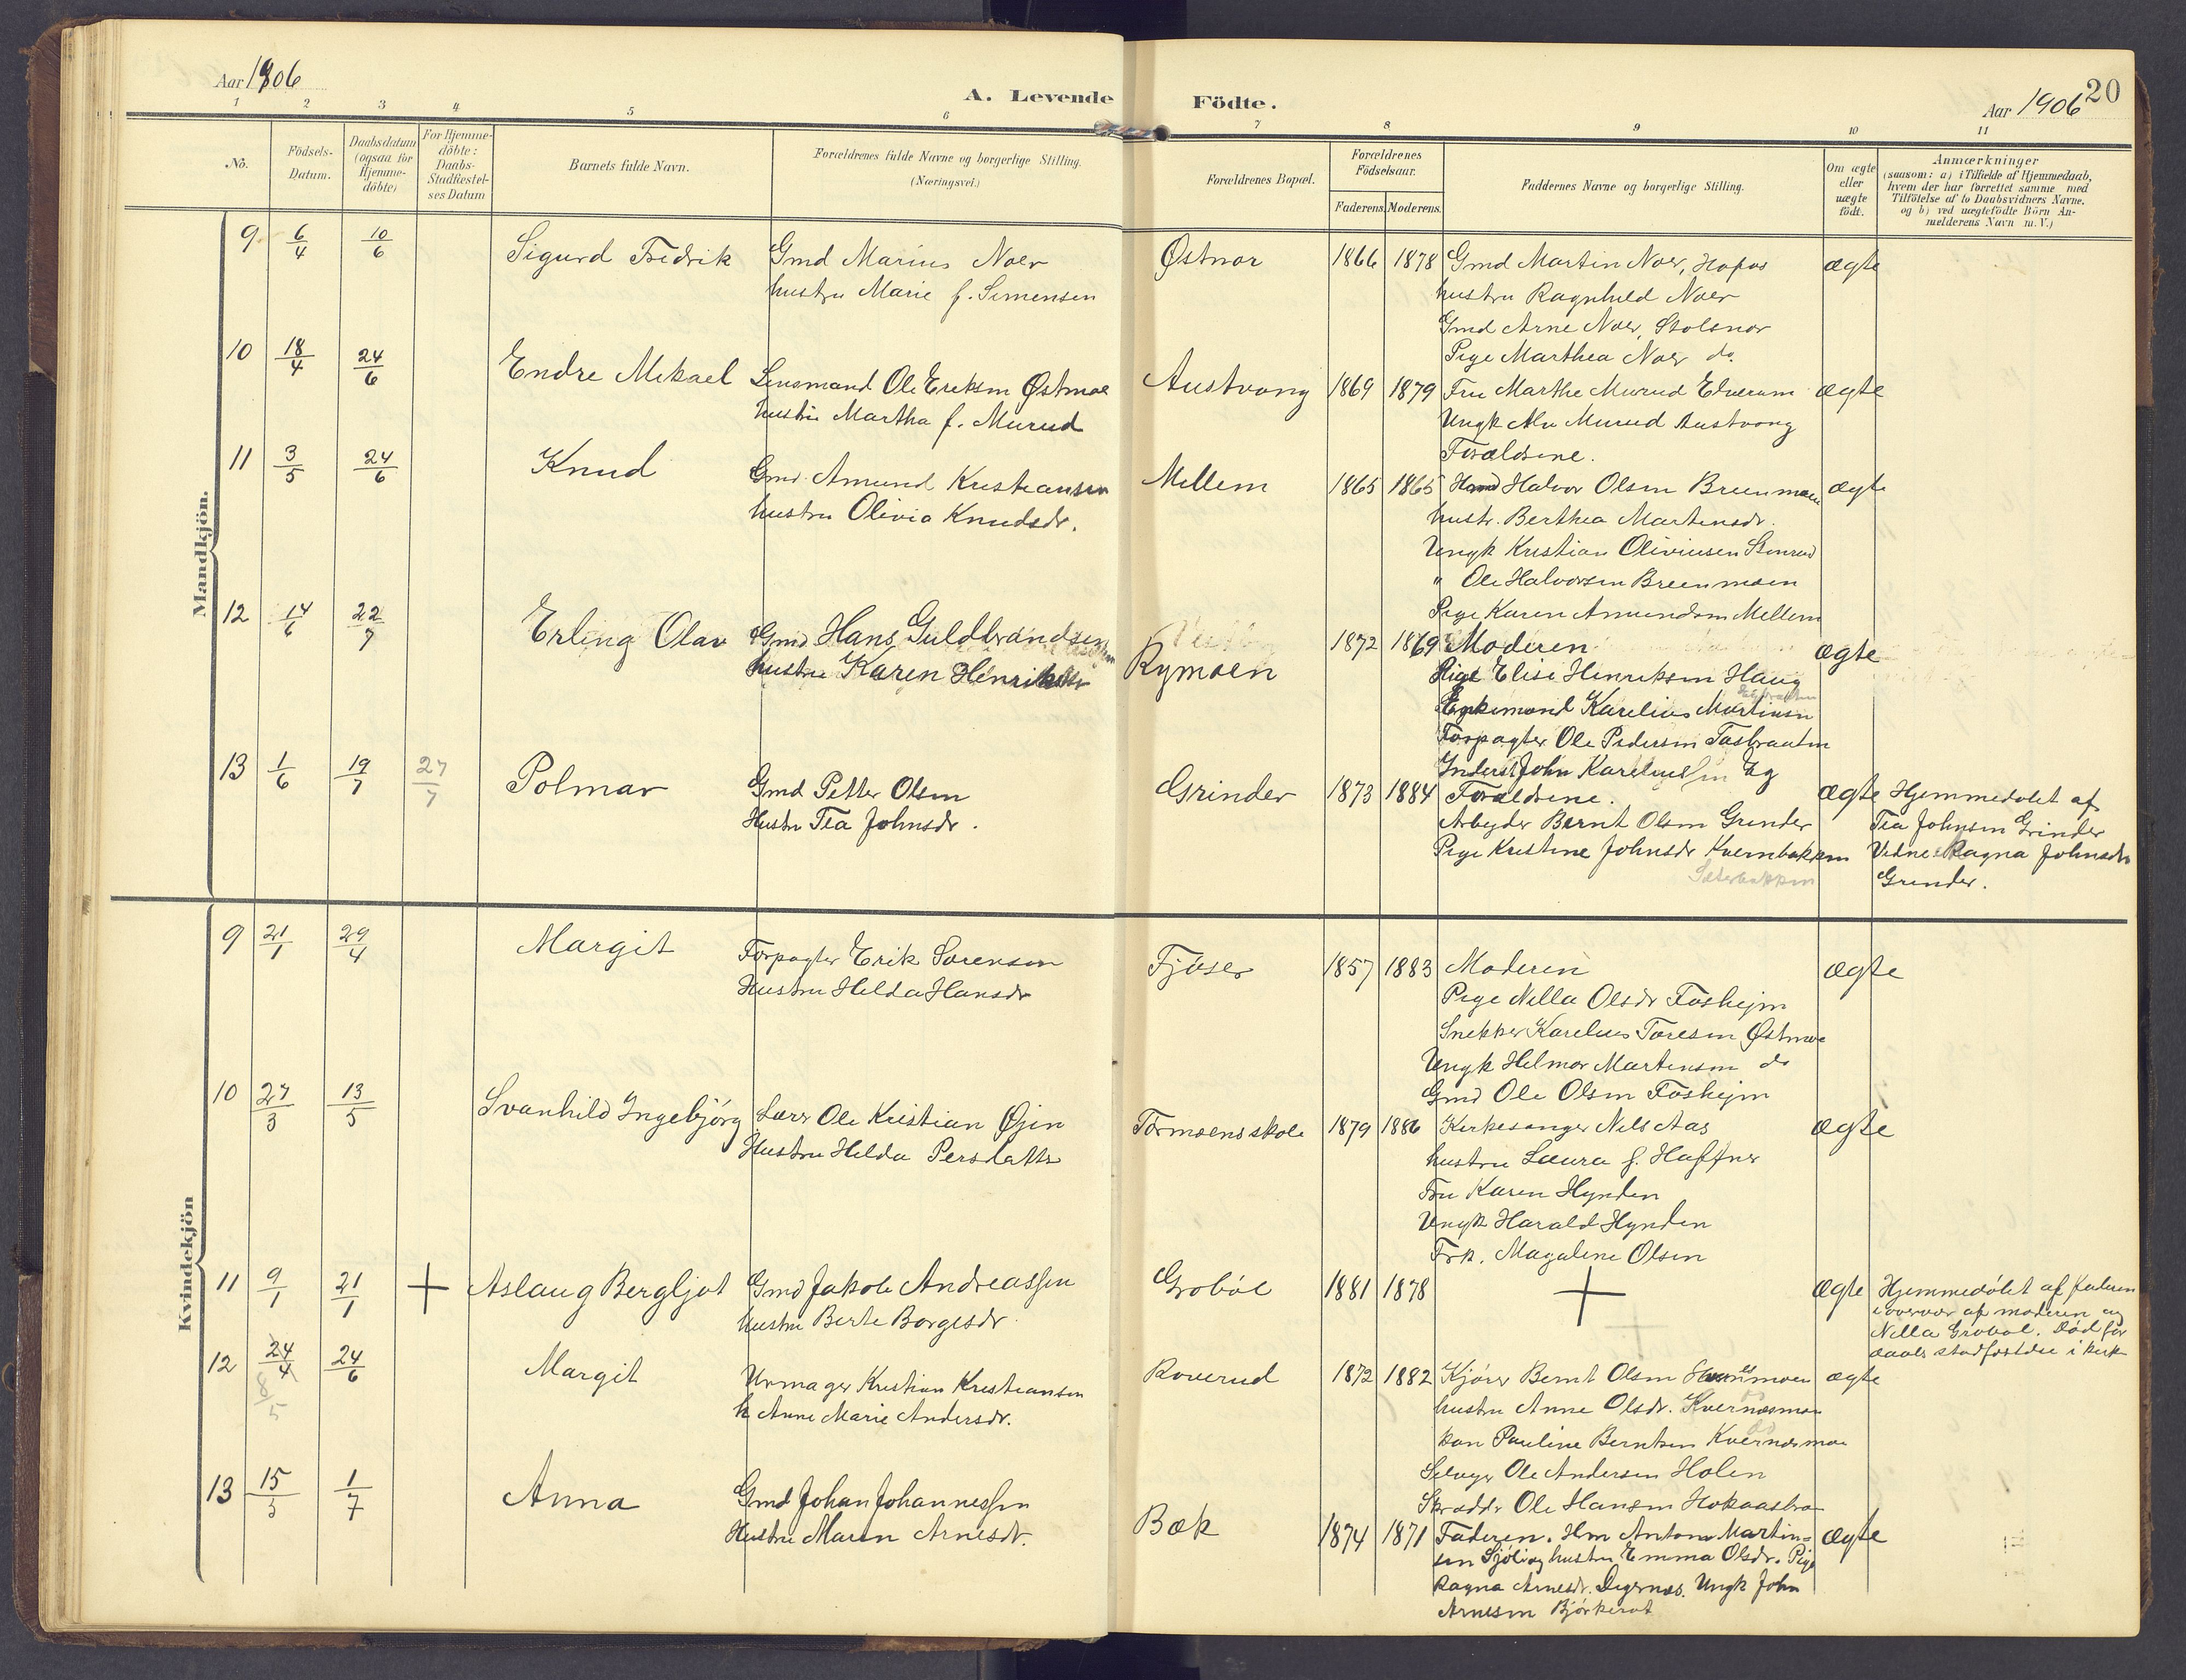 Aar 1906
A. Levende Födte.
Aar 1906
20
1 2 3 4 5 6 7 8 9 10 11
No.
Födsels-
Datum.
Daabsdatum
(ogsaa for
Hjemme-
döbte)
For Hjemme-
döbte:
Daabs-
Stadfæstel-
ses Datum
Barnets fulde Navn.
Forældrenes fulde Navne og borgerlige Stilling.
(Næringsvei.)
Forældrenes Bopæl.
Forældrenes
Födselsaar.
Faderens Moderens.
Faddernes Navne og borgerlige Stilling.
Om ægte
eller
uægte
födt.
Anmærkninger
(saasom: a) i Tilfælde af Hjemmedaab,
hvem der har forrettet samme med
Tilföielse af to Daabsvidners Navne.
og b) ved uægtefödte Börn An-
melderens Navn m.V.)
Mandkjön.
9 6/4 10/6 Sigurd Fredrik Gmd Marius Noer Østnor 1866 1878 Gmd Martin Noer, Hofos ægte
hustru Marie f. Simensen hustru Ragnhild Noer
Gmd Arne Noer, Stolsnor
Pige Marthea Noer do.
10 18/4 24/6 Endre Mikael Lensmand Ole Eriksen Østmoe Austvong 1869 1879 Fru Marthe Murud Elverum ægte
hustru Martha f. Murud Ungk Murud Austvong
Forældrene.
11 3/5 24/6 Knud Gmd Amund Kristiansen Mellem 1865 1865 Halvor Olsen Breenmoen ægte
hustru Olivia Knudsdr. hustr. Berthea Martinsdr.
Ungk Kristian Oliviusen
" Ole Halvorsen Breenmoen
Pige Karen Amundsen Mellem
12 14/6 22/7 Erling Olav Gmd Hans Guldbrandsen Rymoen 1872 1869 Moderen ægte
hustru Karen Henriksdtr Pige Elise Henriksen Haug
Enkemand Karelius Martinsen
Forpagter Ole Pedersen Tasbraaten
Inderst John Kareliussen Eg
13 1/6 19/7 27/7 Polmar Gmd Petter Olsen Grinder 1873 1884 Forældrene. ægte Hjemmedøbt af
Hustru Tea Johnsdr. Arbejder Bernt Olsen Grinder Tea Johnsen Grinder
Pige Kristine Johnsdr Kvernbakken Vidne: Ragna Johnsdr
Sæterbakken Grinder.
Kvindekjön
9 21/1 29/4 Margit Forpagter Erik Sørensen Fjøser 1857 1883 Moderen ægte
Hustru Hilda Hansdr Pige Nilla Olsdr Foshejm
Snekker Karelius Toresen Østmoe
Ungk Helmar Martinsen do
Gmd Ole Olsen Foshejm
10 27/3 13/5 Svanhild Ingebjörg Lærer Ole Kristian Øjen Tørmoens skole 1879 1886 Kirkesanger Nils Aas ægte
Hustru Hilda Persdatter hustru Laura f. Haffner
Fru Karen Hynden
Ungk Harald Hynden
Frk. Magdalene Olsen
11 9/1 21/1 + Aslaug Bergljot Gmd Jakob Andreassen Grobøl 1881 1878 + ægte Hjemmedöbt af faderen
hustru Berte Borgesdr i overvær af moderen og
Nilla Grobøl. Død før
daabs stadfæstelse i kirk
12 24/4 8/5 24/6 Margit Urmager Kristian Kristiansen Roverud 1872 1882 Kjører Bernt Olsen ægte
h Anne Marie Andersdr. hustru Anne Olsdr. Kvernæsmoen
Pauline Berntsen Kvernæsmoen
Selveger Ole Andersen Holen
Skrædder Ole Hansen
13 15/3 1/7 Anna Gmd Johan Johannessen Bæk 1874 1871 Faderen. Hm Anton Martin- ægte
Hustru Maren Arnesdr. sen Sjöli og hustru Emma Olsdr. Pige
Ragna Arnesdr. Digernæs. Ungk John
Arnesen